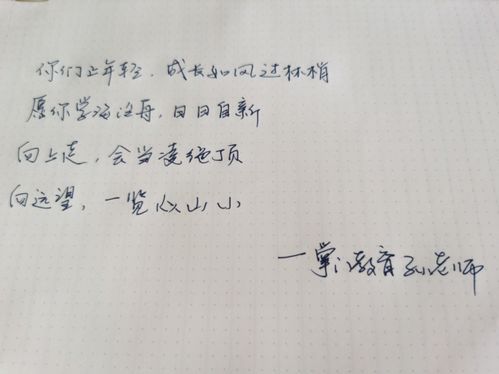 你们正年轻，成长如风过林梢
愿你学海泛舟，日日自新
向上走，会当凌绝顶
向远望，一览众山小
一掌门教育 孙老师